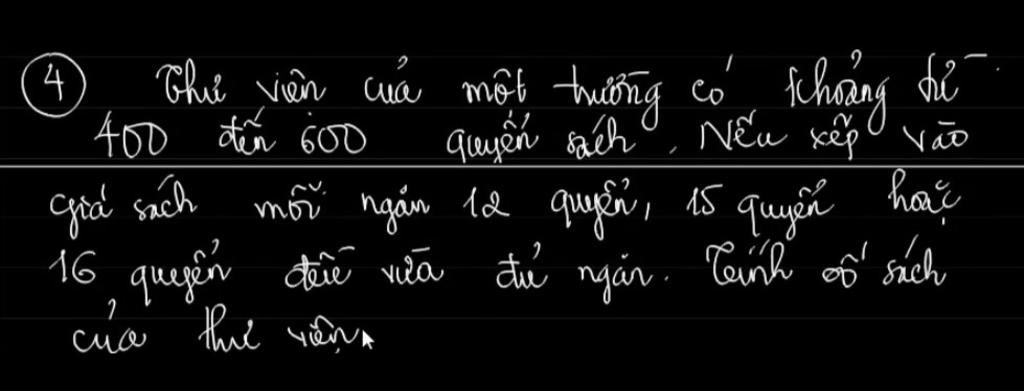 ④ Thư viện của một trường có khoảng từ
400 đến 600 quyển sách. Nếu xếp vào
giá sách mỗi ngăn 12 quyển, 15 quyển hoặc
16 quyển đều vừa đủ ngăn. Tính số sách
của thư viện.